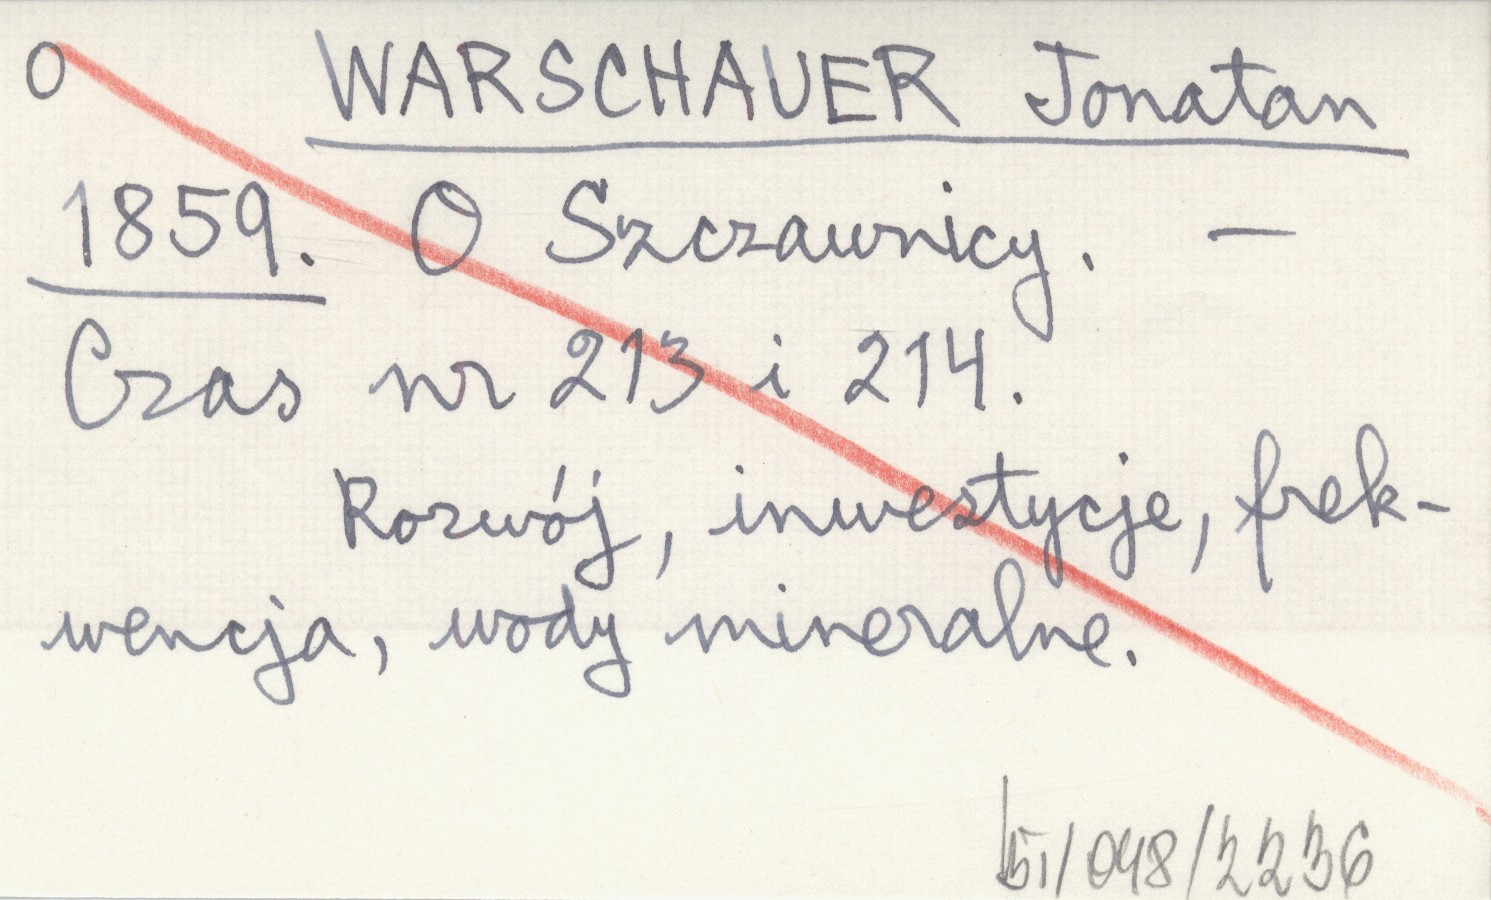 O WARSCHAUER Jonatan
1859. O Szczawnicy. —
Czas nr 213 i 214.
Rozwój, inwestycje, frek-
wencja, wody mineralne.
/048/2236